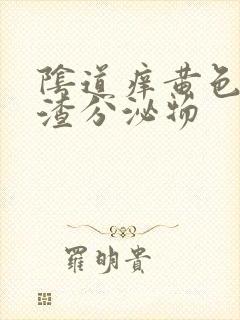 陰道痒黄色
渣分泌物
羅明貴